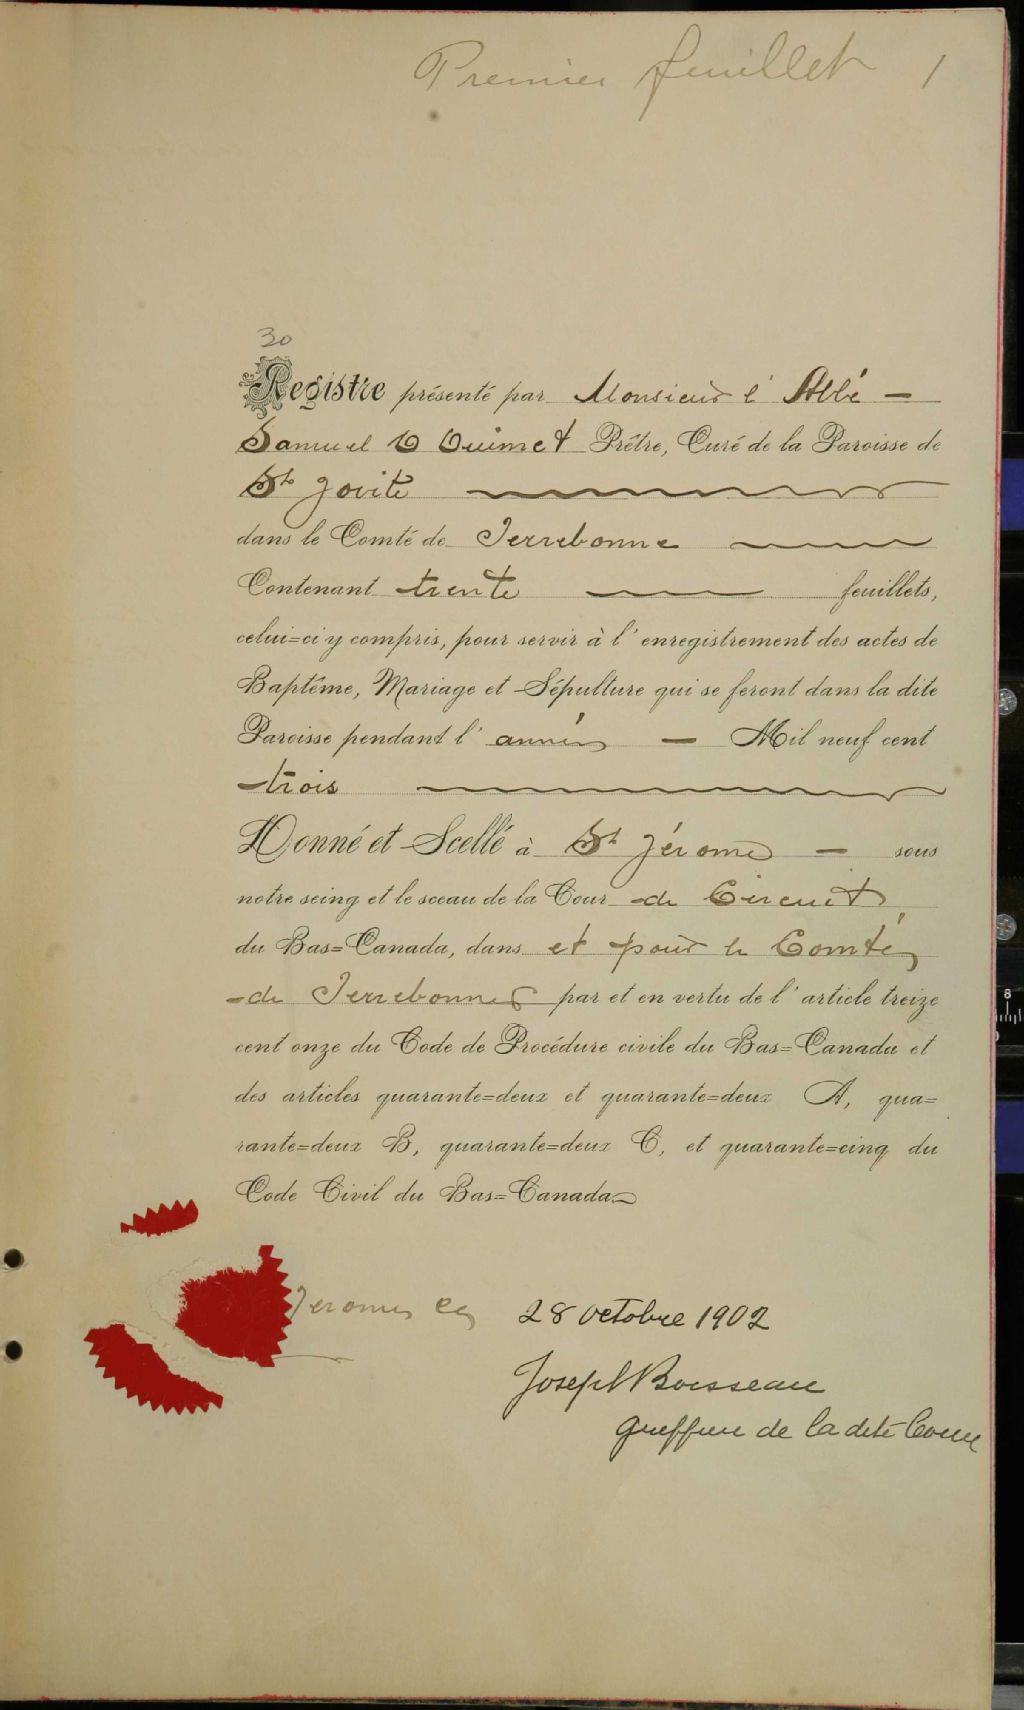 Premier feuillet 1
30
Registre présenté par Monsieur l'Abbé —
Samuel O Ouimet Prêtre, Curé de la Paroisse de
St Jovite
dans le Comté de Terrebonne
Contenant trente feuillets,
celui=ci y compris, pour servir à l'enregistrement des actes de
Baptême, Mariage et Sépulture qui se feront dans la dite
Paroisse pendant l'année — Mil neuf cent
trois
Donné et Scellé à St Jérome — sous
notre seing et le sceau de la Cour de Circuit
du Bas=Canada, dans et pour le Comté
de Terrebonne par et en vertu de l'article treize
cent onze du Code de Procédure civile du Bas=Canada et
des articles quarante=deux et quarante=deux A, qua=
rante=deux B, quarante=deux C, et quarante=cinq du
Code Civil du Bas=Canada
Jerome ce 28 octobre 1902
Joseph Boisseau
Greffier de la dite Cour
8